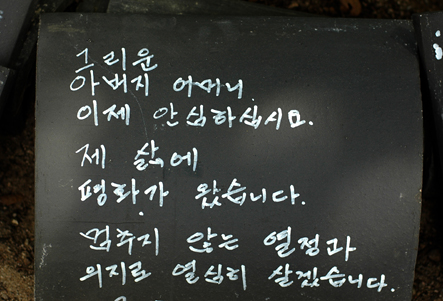 그리운
아버지 어머니
이제 안심하십시오.
제 삶에
평화가 왔습니다.
멈추지 않는 열정과
의지로 열심히 살겠습니다.